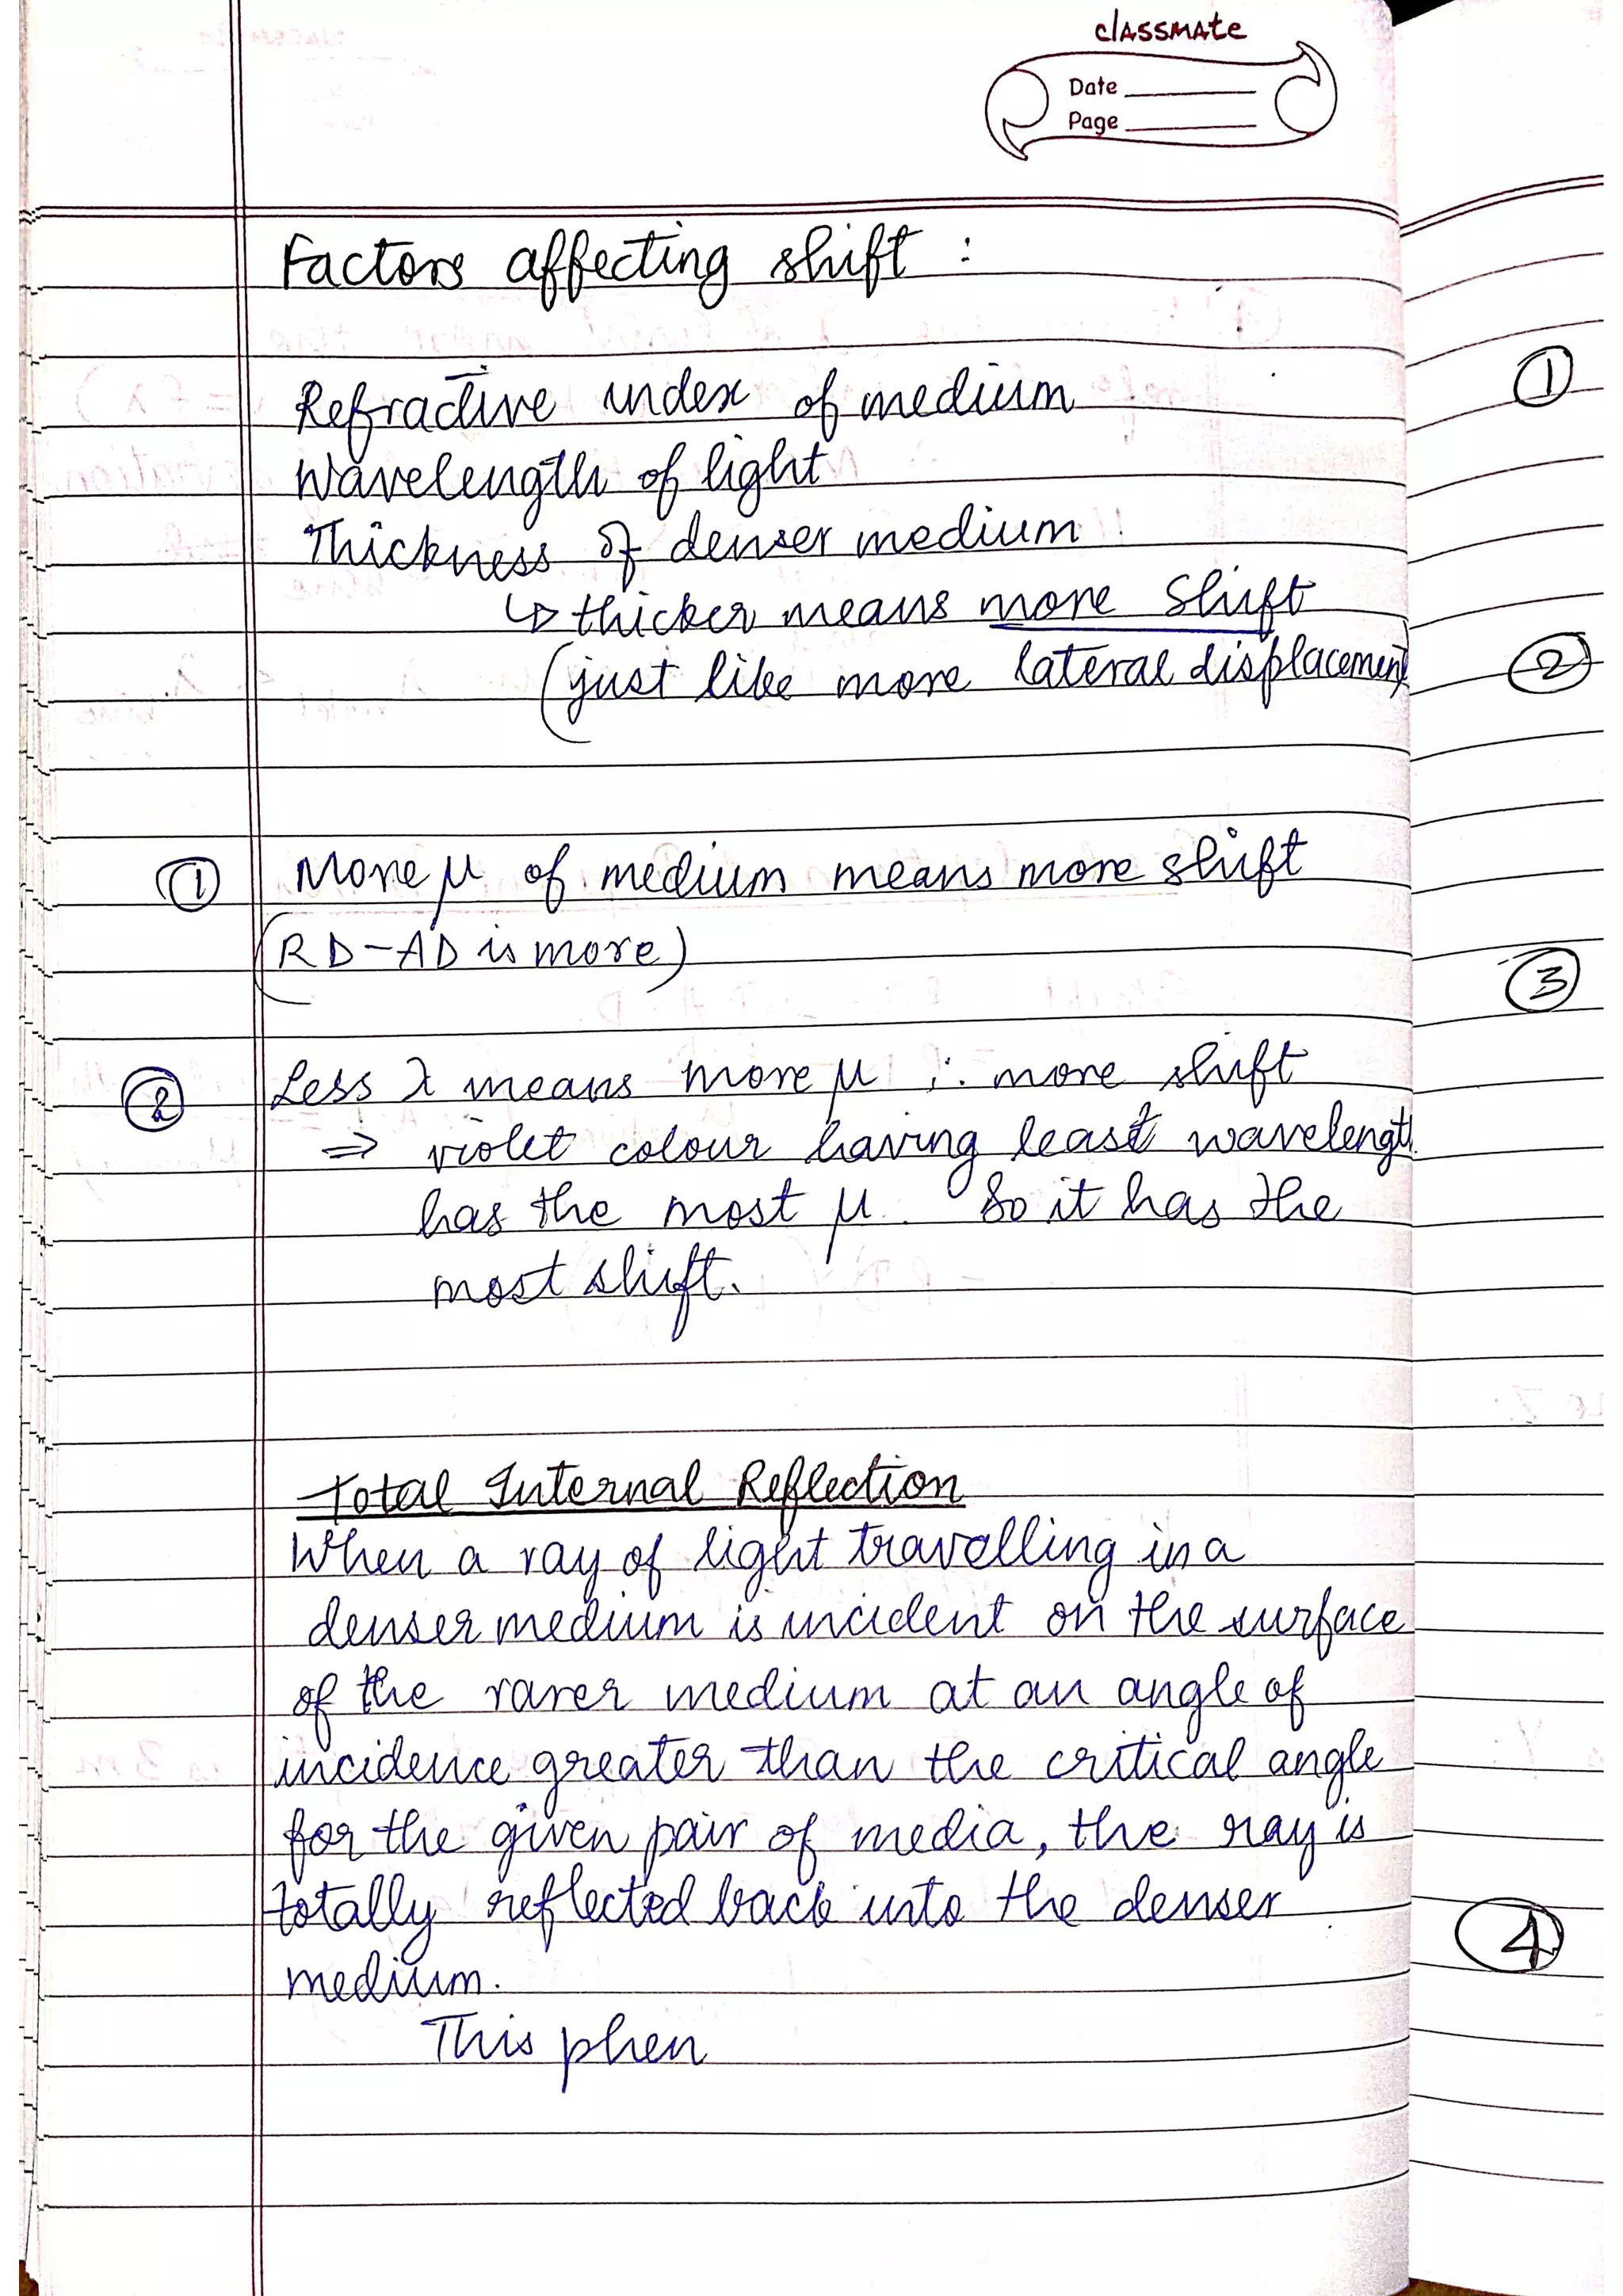 classmate
Date
Page
Factors affecting shift :
Refractive index of medium
Wavelength of light
Thickness of denser medium
↳ thicker means more shift
(just like more lateral displacement)
① More μ of medium means more shift
(RD-AD is more)
② Less λ means more μ ∴ more shift
⇒ violet colour having least wavelengt
has the most μ. So it has the
most shift.
Total Internal Reflection
When a ray of light travelling in a
denser medium is incident on the surface
of the rarer medium at an angle of
incidence greater than the critical angle
for the given pair of media, the ray is
totally reflected back into the denser
medium.
This phen
①
②
③
④